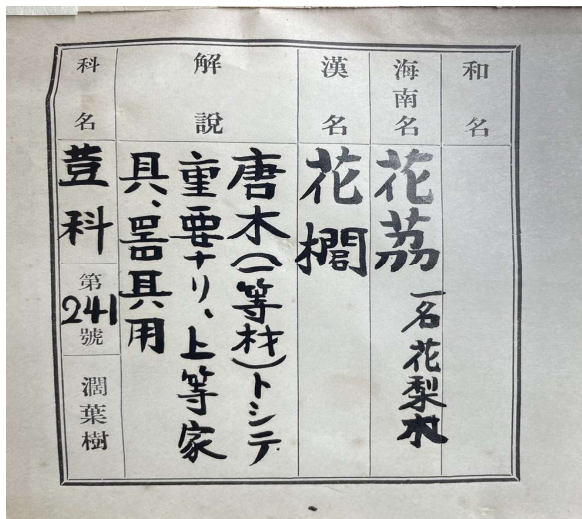 和名
海南名
花茘
一名花梨木
漢名
花櫚
解說
唐木(一等材)トシテ
重要ナリ、上等家
具、器具用
科名
荳科
第241號
濶葉樹